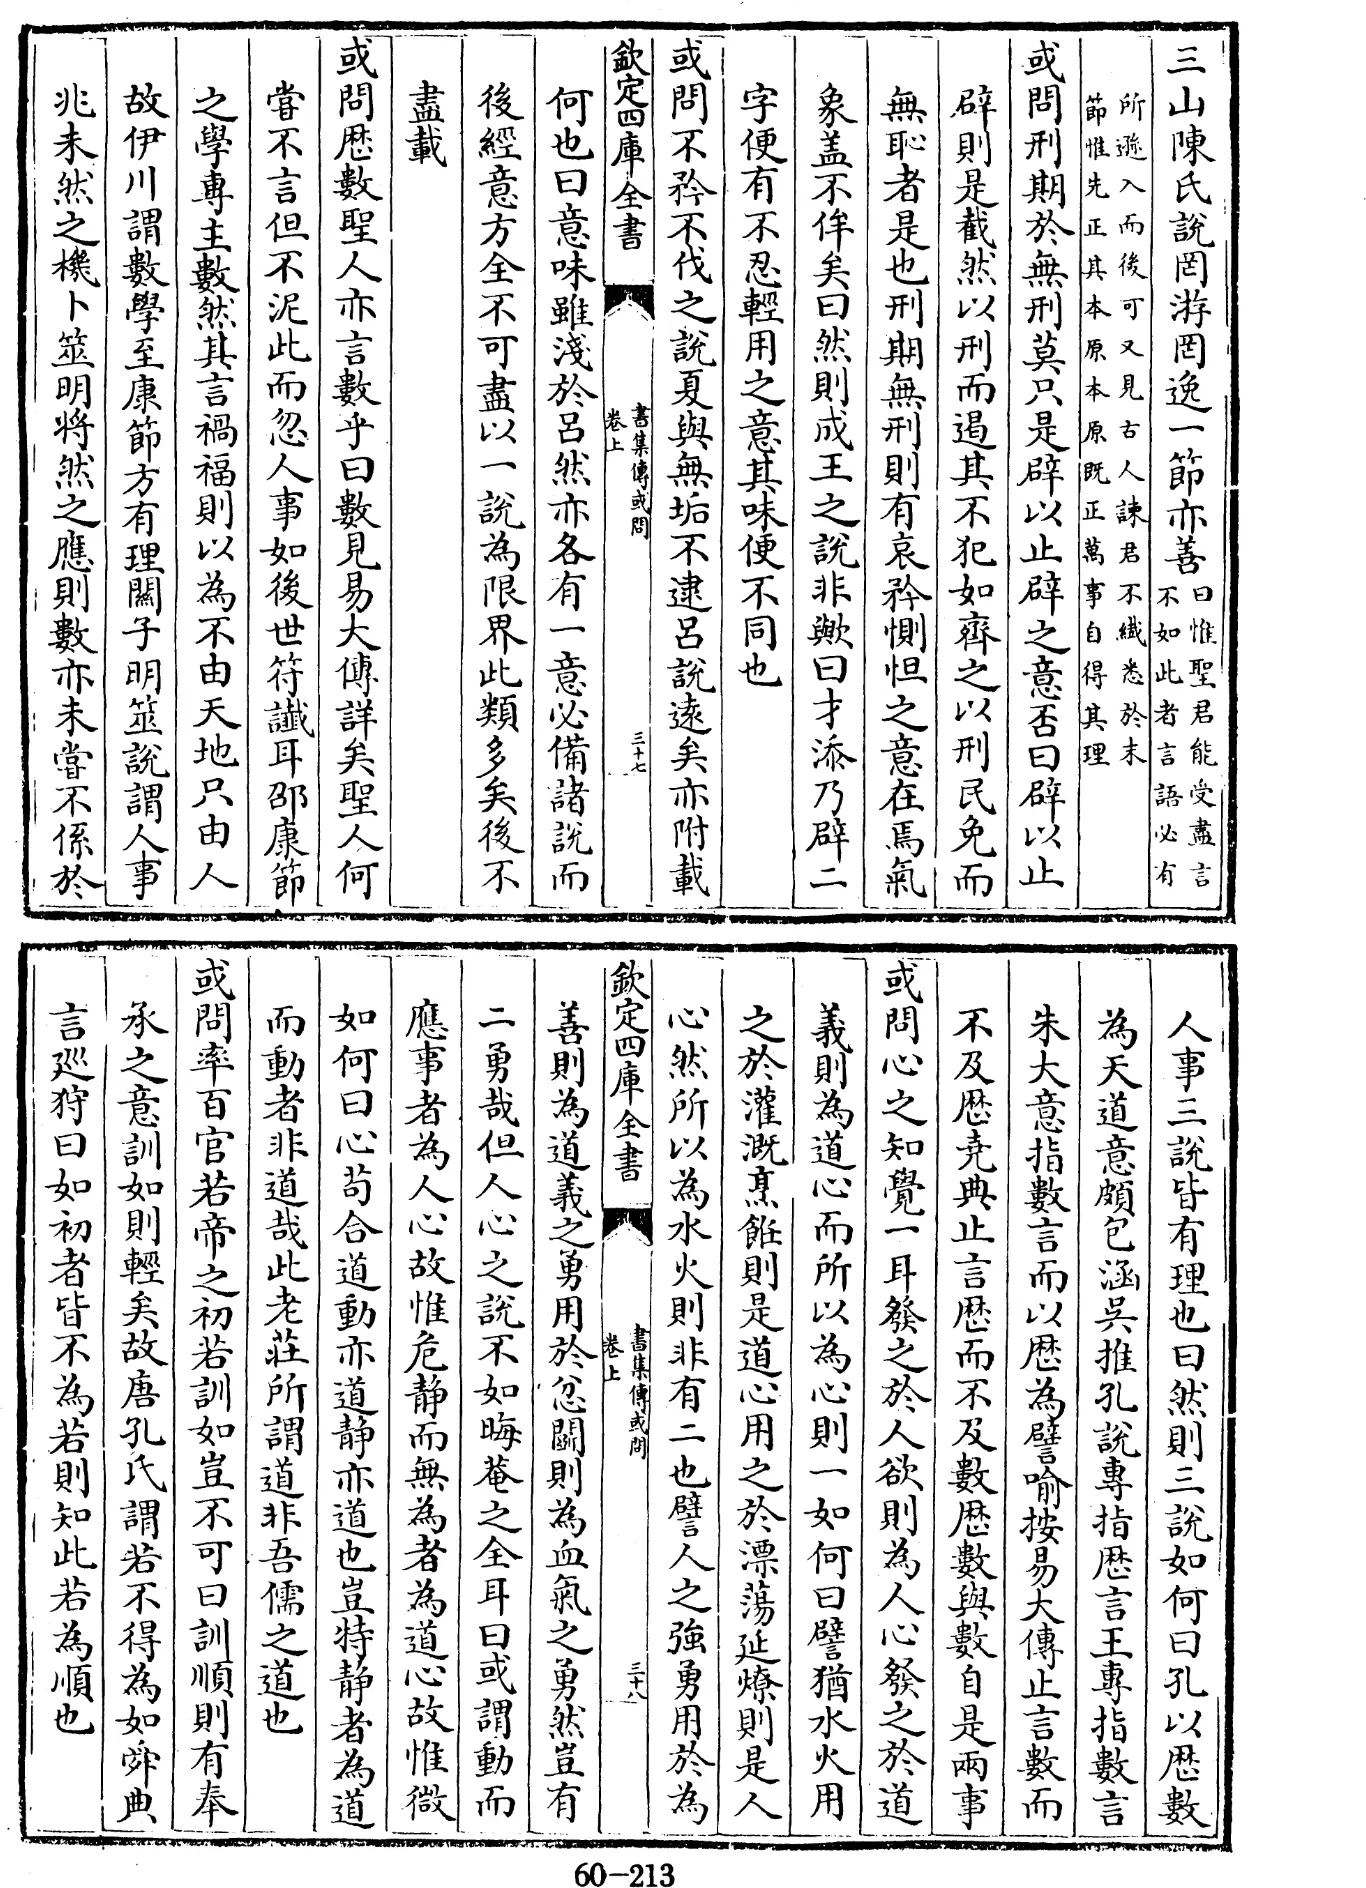 三山陳氏說罔游罔逸一節亦善曰惟聖君能受盡言不如此者言語必有
所遜入而後可又見古人諫君不纖悉於末節惟先正其本原本原既正萬事自得其理
或問刑期於無刑莫只是辟以止辟之意否曰辟以止
辟則是截然以刑而遏其不犯如齊之以刑民免而
無恥者是也刑期無刑則有哀矜惻怛之意在焉氣
象盖不侔矣曰然則成王之說非歟曰才添乃辟二
字便有不忍輕用之意其味便不同也
或問不矜不伐之說夏與無垢不逮呂說遠矣亦附載
欽定四庫全書
書集傳或問
卷上
三十七
何也曰意味雖淺於呂然亦各有一意必備諸說而
後經意方全不可盡以一說為限界此類多矣後不
盡載
或問歷數聖人亦言數乎曰數見易大傳詳矣聖人何
嘗不言但不泥此而忽人事如後世符讖耳邵康節
之學專主數然其言禍福則以為不由天地只由人
故伊川謂數學至康節方有理關子明筮說謂人事
兆未然之機卜筮明將然之應則數亦未嘗不係於
人事三說皆有理也曰然則三說如何曰孔以歷數
為天道意頗包涵吳推孔說專指歷言王專指數言
朱大意指數言而以歷為譬喻按易大傳止言數而
不及歷堯典止言歷而不及數歷數與數自是兩事
或問心之知覺一耳發之於人欲則為人心發之於道
義則為道心而所以為心則一如何曰譬猶水火用
之於灌溉烹飪則是道心用之於漂蕩延燎則是人
心然所以為水火則非有二也譬人之強勇用於為
欽定四庫全書
書集傳或問
卷上
三十八
善則為道義之勇用於忿鬭則為血氣之勇然豈有
二勇哉但人心之說不如晦菴之全耳曰或謂動而
應事者為人心故惟危靜而無為者為道心故惟微
如何曰心苟合道動亦道靜亦道也豈特靜者為道
而動者非道哉此老莊所謂道非吾儒之道也
或問率百官若帝之初若訓如豈不可曰訓順則有奉
承之意訓如則輕矣故唐孔氏謂若不得為如舜典
言巡狩曰如初者皆不為若則知此若為順也
60-213